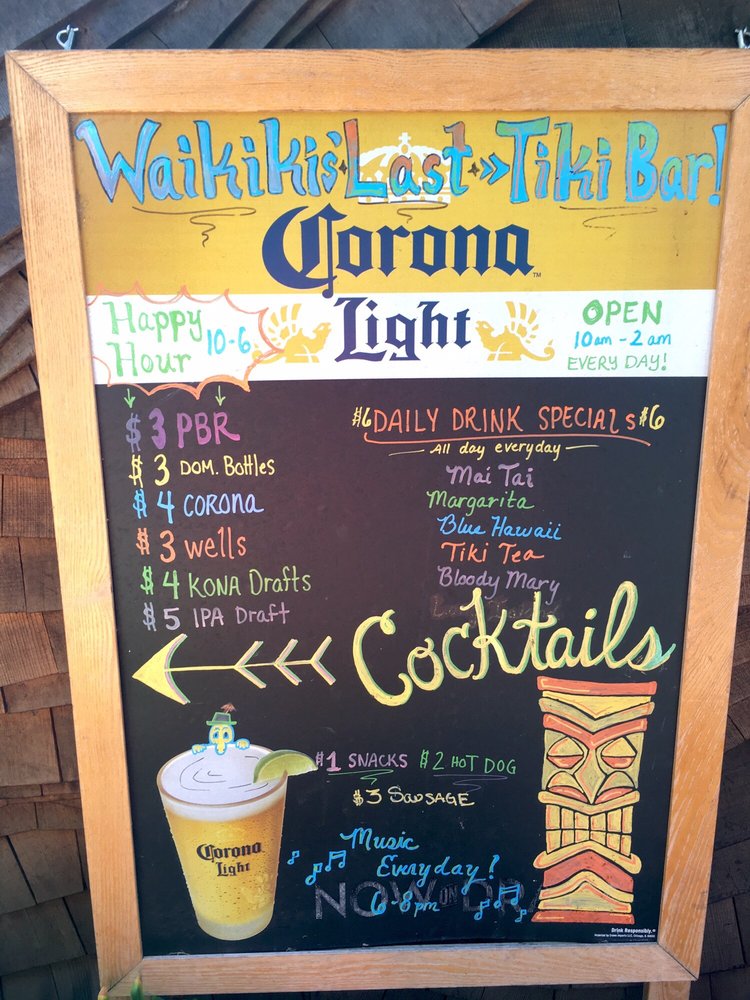 Waikiki's Last >> Tiki Bar!
Corona™
Light
Happy
Hour 10-6
OPEN
10am - 2am
EVERY DAY!
$3 PBR
$3 DOM. Bottles
$4 CORONA
$3 wells
$4 KONA Drafts
$5 IPA Draft
$6 DAILY DRINK SPECIALS $6
All day everyday
Mai Tai
Margarita
Blue Hawaii
Tiki Tea
Bloody Mary
Cocktails
$1 SNACKS $2 HOT DOG
$3 SAUSAGE
Corona
Light
Music
Everyday!
6-8pm
NOW ON DRA
Drink Responsibly.®